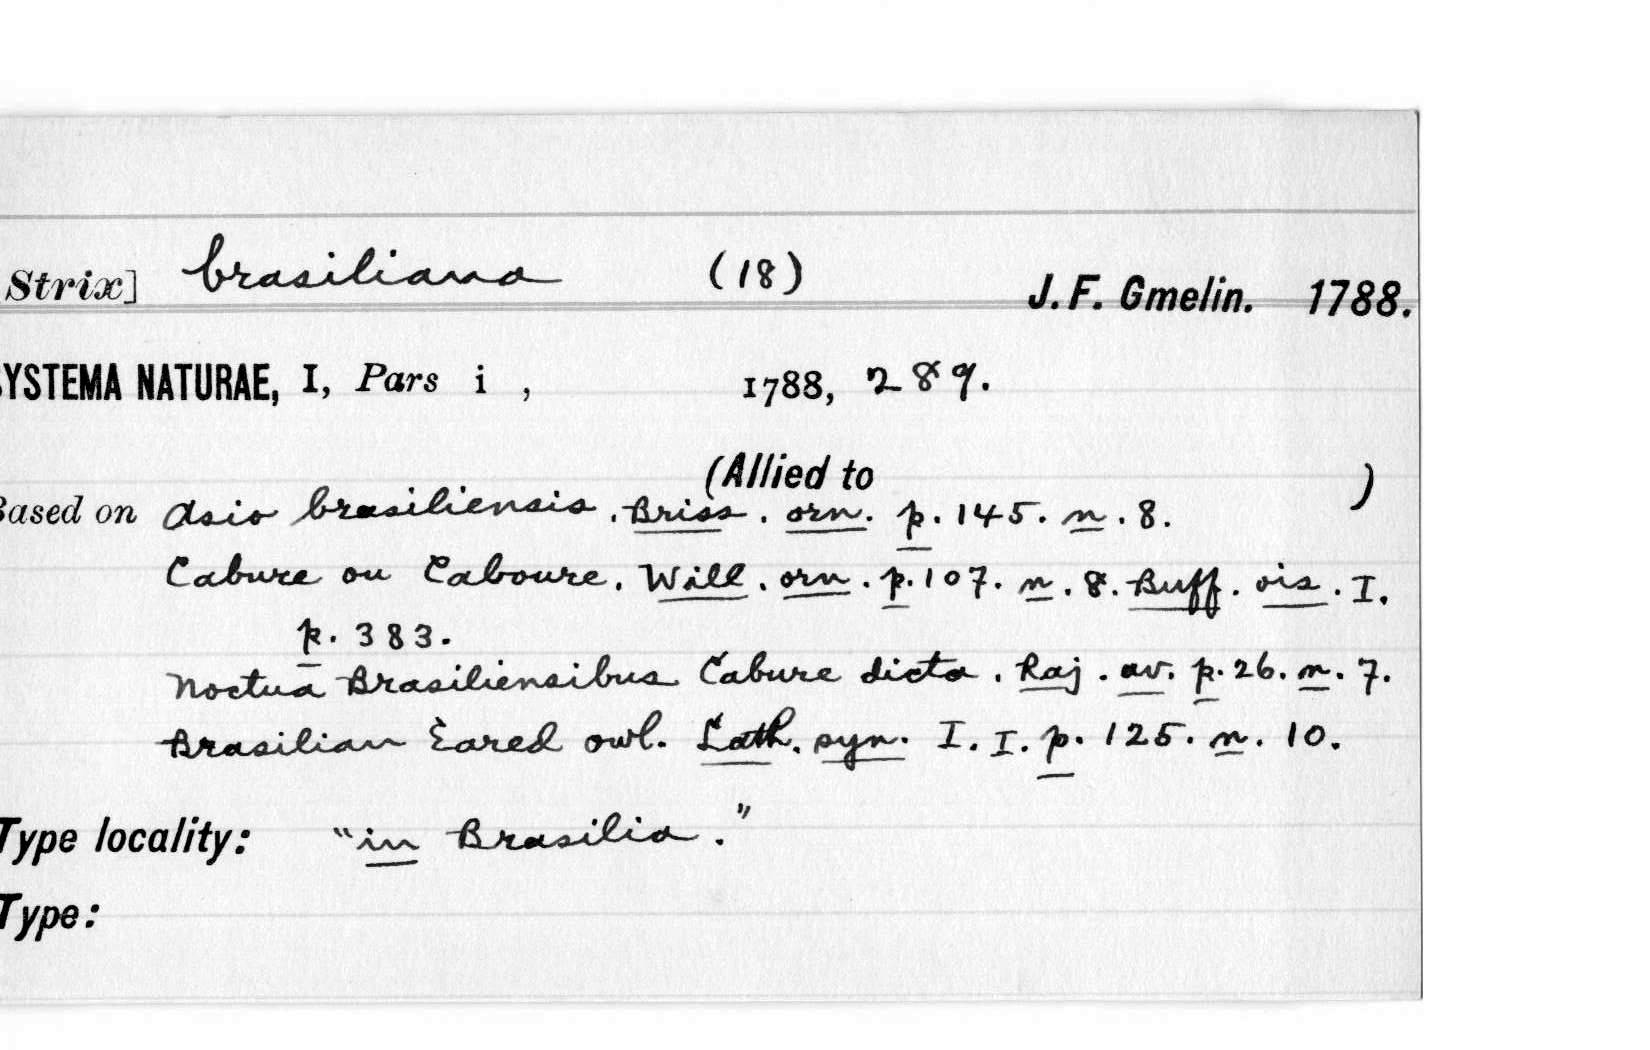 Strix] brasiliana (18) J. F. Gmelin. 1788.
SYSTEMA NATURAE, I, Pars i , 1788, 289.
(Allied to )
Based on Asio brasiliensis . Briss . orn. p. 145. n . 8.
Cabure ou Caboure. Will . orn . p. 107. n . 8. Buff . ois . I.
p. 383.
Noctua Brasiliensibus Cabure dicta . Raj . av. p. 26. n . 7.
Brasilian Eared owl. Lath. syn. I. I. p. 125. n . 10.
Type locality: "in Brasilia ."
Type: